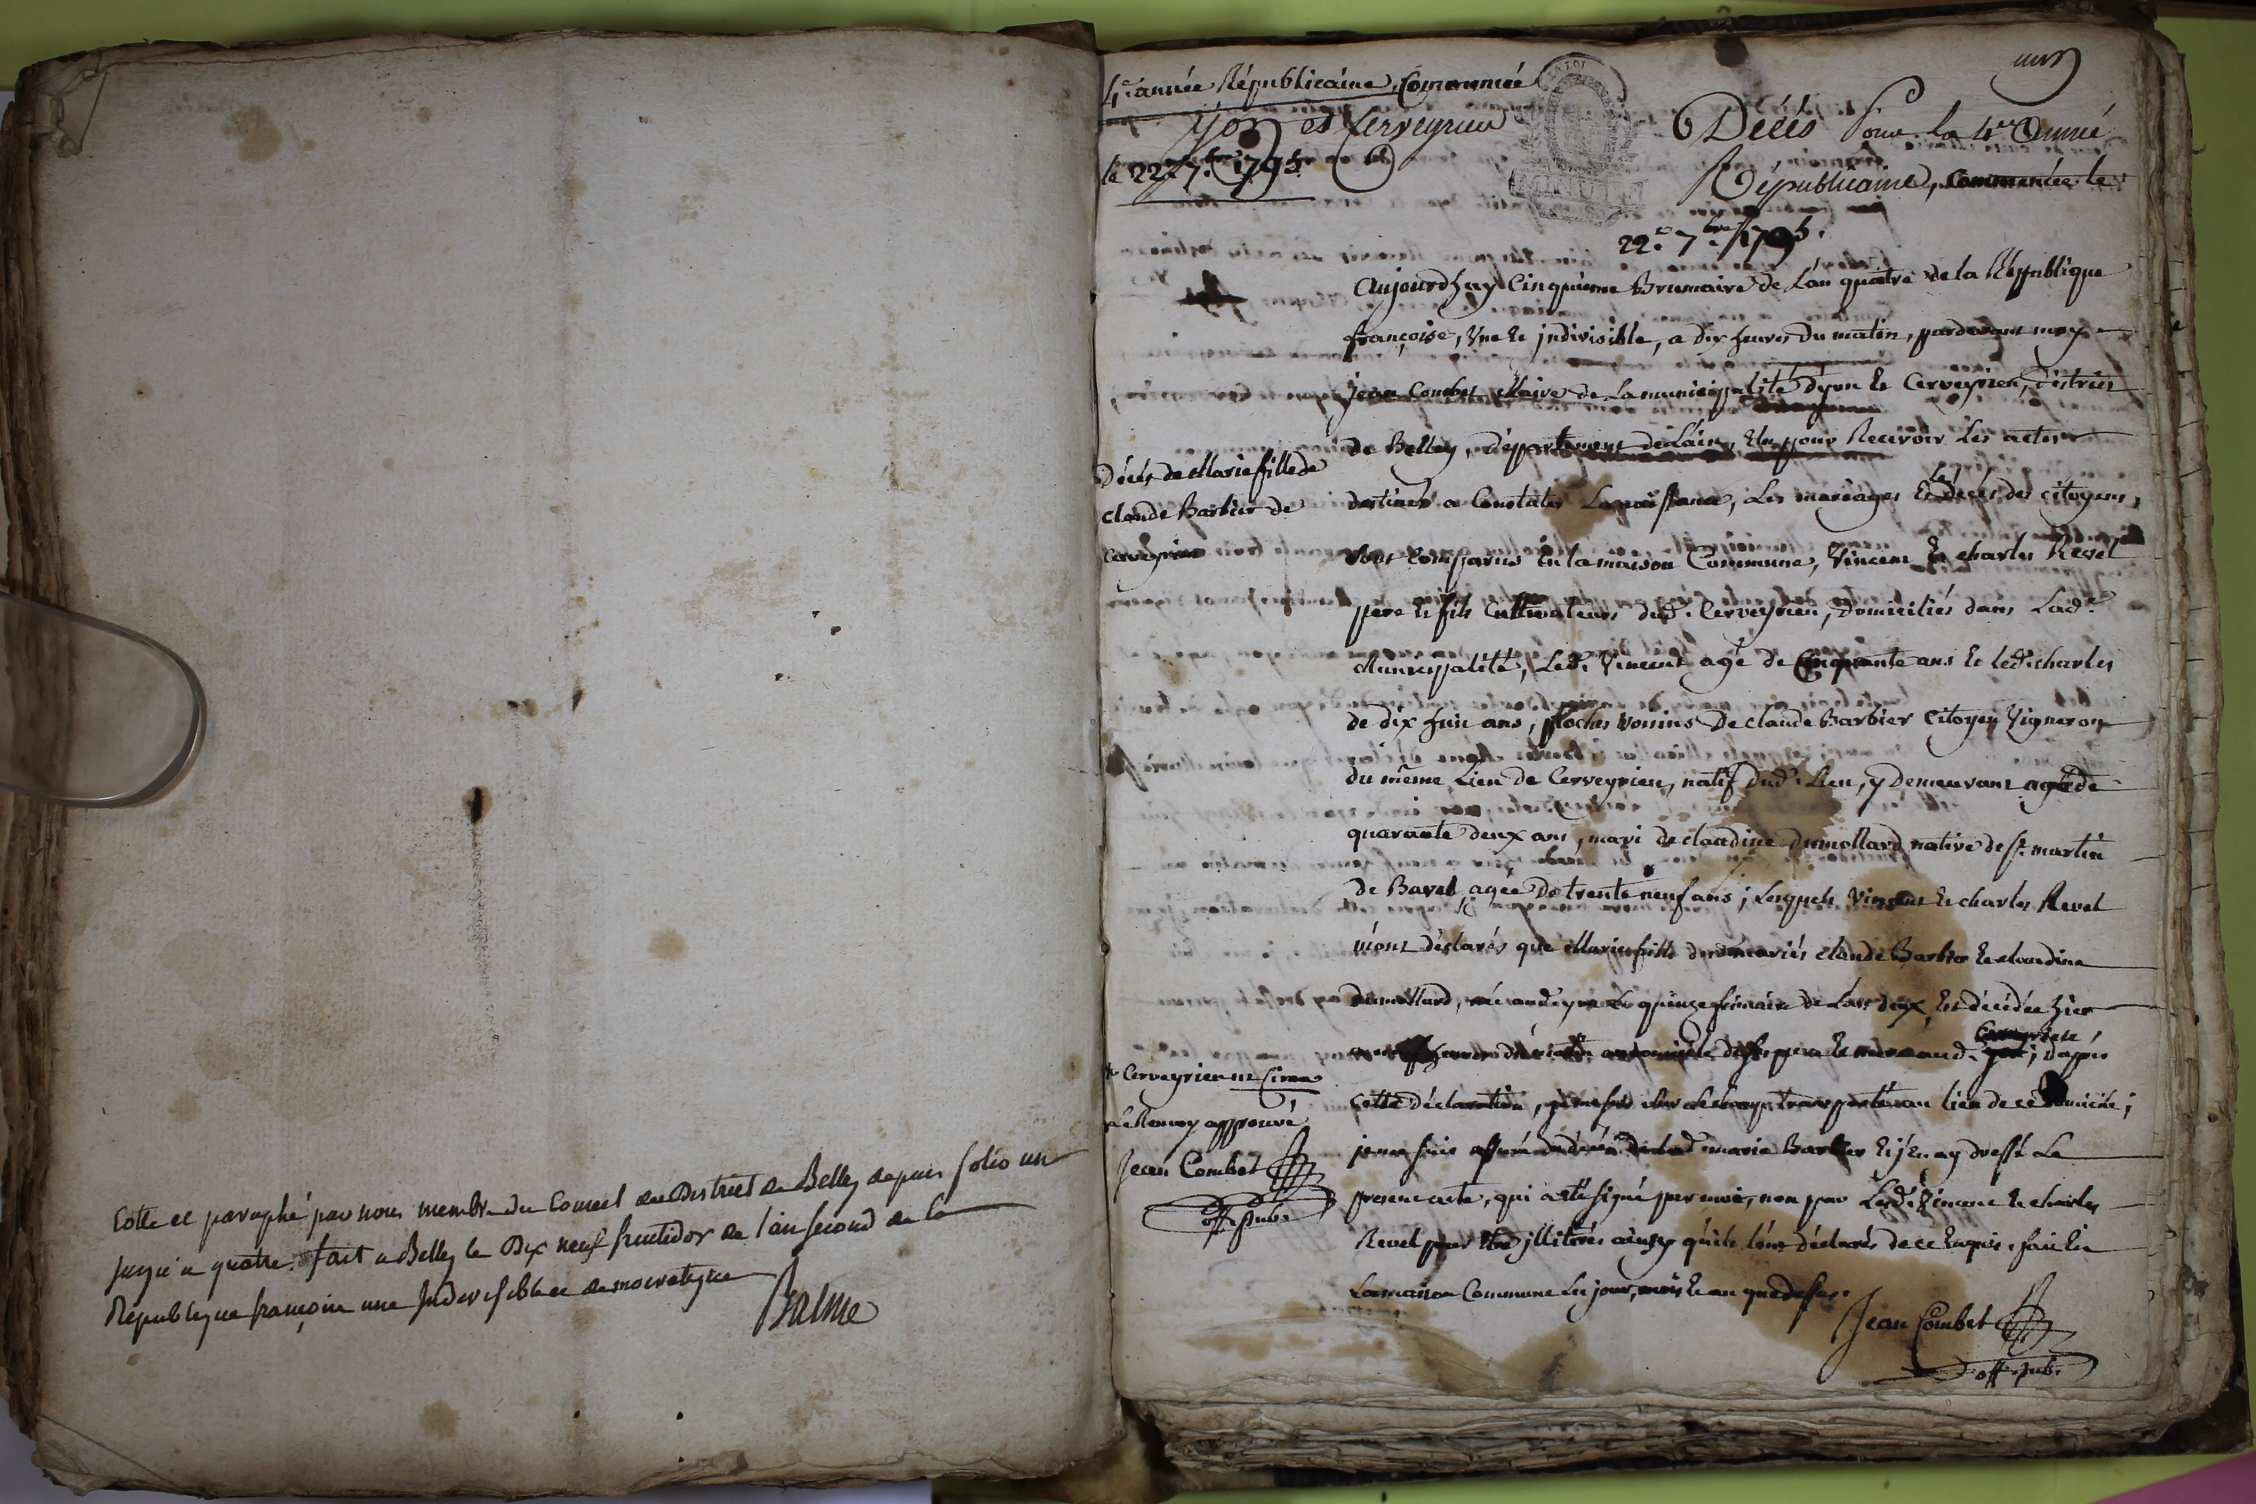 Cotté et paraphé par nous membre du Conseil du District de Belley depuis folio un
jusqu'a quatre. fait a Belley le Dix neuf fructidor de l'an second de la
Republique françoise une Indivisible et democratique
Balme
4.e année Républicaine, Commencée
yon et Cerveyrieu
le 22. 7.bre 1795.
Décès Pour la 4.e Année
Républicaine, Commencée le
22.e 7.bre 1795.
Décès de Marie fille de
Claude Barbier de
Cerveyrieu
Aujourdhuy Cinquieme Brumaire de L'an quatre de la République
françoise, Une et jndivisible, a dix heures du matin, pardevant moy
jean Combet Maire de La municipalité d'yon et Cerveyrieu, district
de Belley, département de L'ain, Elu pour Recevoir Les actes
destinés a Constater La naissance, Les mariages et les décès des citoyens,
sont comparus En la maison Commune, Vincent et charles Revel
pere et fils Cultivateurs dud. Cerveyrieu, Domiciliés dans Lad.e
Municipalité, Led. Vincent agé de Cinquante ans et led. charles
de dix huit ans, proches voisins De claude Barbier Citoyen Vigneron
du même Lieu de Cerveyrieu, natif dud. Lieu, y demeurant agé de
quarante deux ans, mari de claudine dumollard native de St. martin
de Bavel agée De trente neuf ans; Lesquels Vincent et charles Revel
m'ont déclarés que Marie fille desd. mariés claude Barbier et claudine
dumollard, née le quinze frimaire de L'an deux, Est décédée hier
heures du matin au domicile de ses pere et mere aud. Cerveyrieu; d'après
Cette déclaration, je me suis sur Le champ transporté au lieu de ce domicile;
je me suis assuré du décès de lad. marie Barbier Et j'En ay dressé Le
present acte, qui a été signé par moi, non par Lesd. Vincent et charles
Revel pour Etre jllitérés ainsy qu'ils l'ont déclarés de ce Enquis. fait En
La maison Commune Les jour, mois et an que dessus.
Jean Combet
off. pub.
Cerveyrieu
Le Renvoy approuvé
Jean Combet
off. pub.